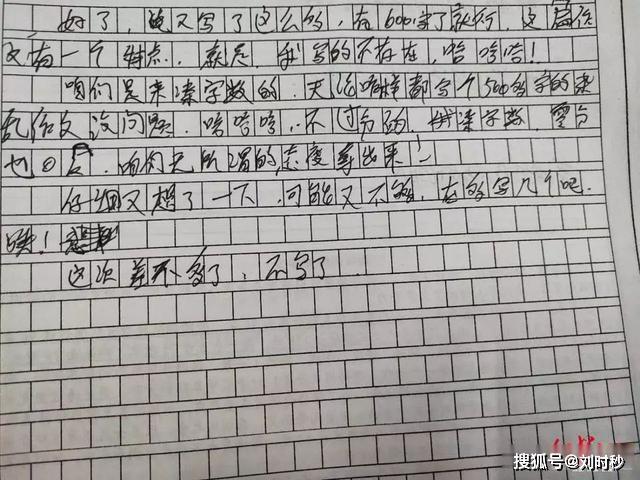 好了，也又写了这么多，有600字了就行，这篇作
文有一个特点，就是，我写的不存在，哈哈哈！
咱们是来凑字数的，无论咱样都写个500多字的
作文没问题，哈哈哈，不过分的，凑字数，
也，咱们无所谓的态度拿出来！
仔细又想了一下，可能又不够，在多写几个吧.
唉！
这次差不多了，不写了
搜狐号@刘时秒